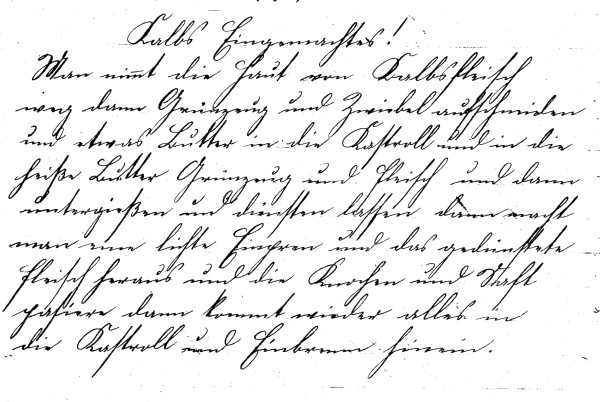 Kalbs Eingemachtes!
Man nimt die Haut von Kalbsfleisch
weg dann Grünzeug und Zwiebel aufschneiden
und etwas Butter in die Kastroll und in die
heiße Butter Grünzeug und Fleisch und dann
untergießen und dünsten lassen dann macht
man eine lichte Einpren und das gedünstete
Fleisch heraus und die Knochen und Saft
pasiere dann kommt wieder alles in
die Kastroll und Einbrenn hinein.